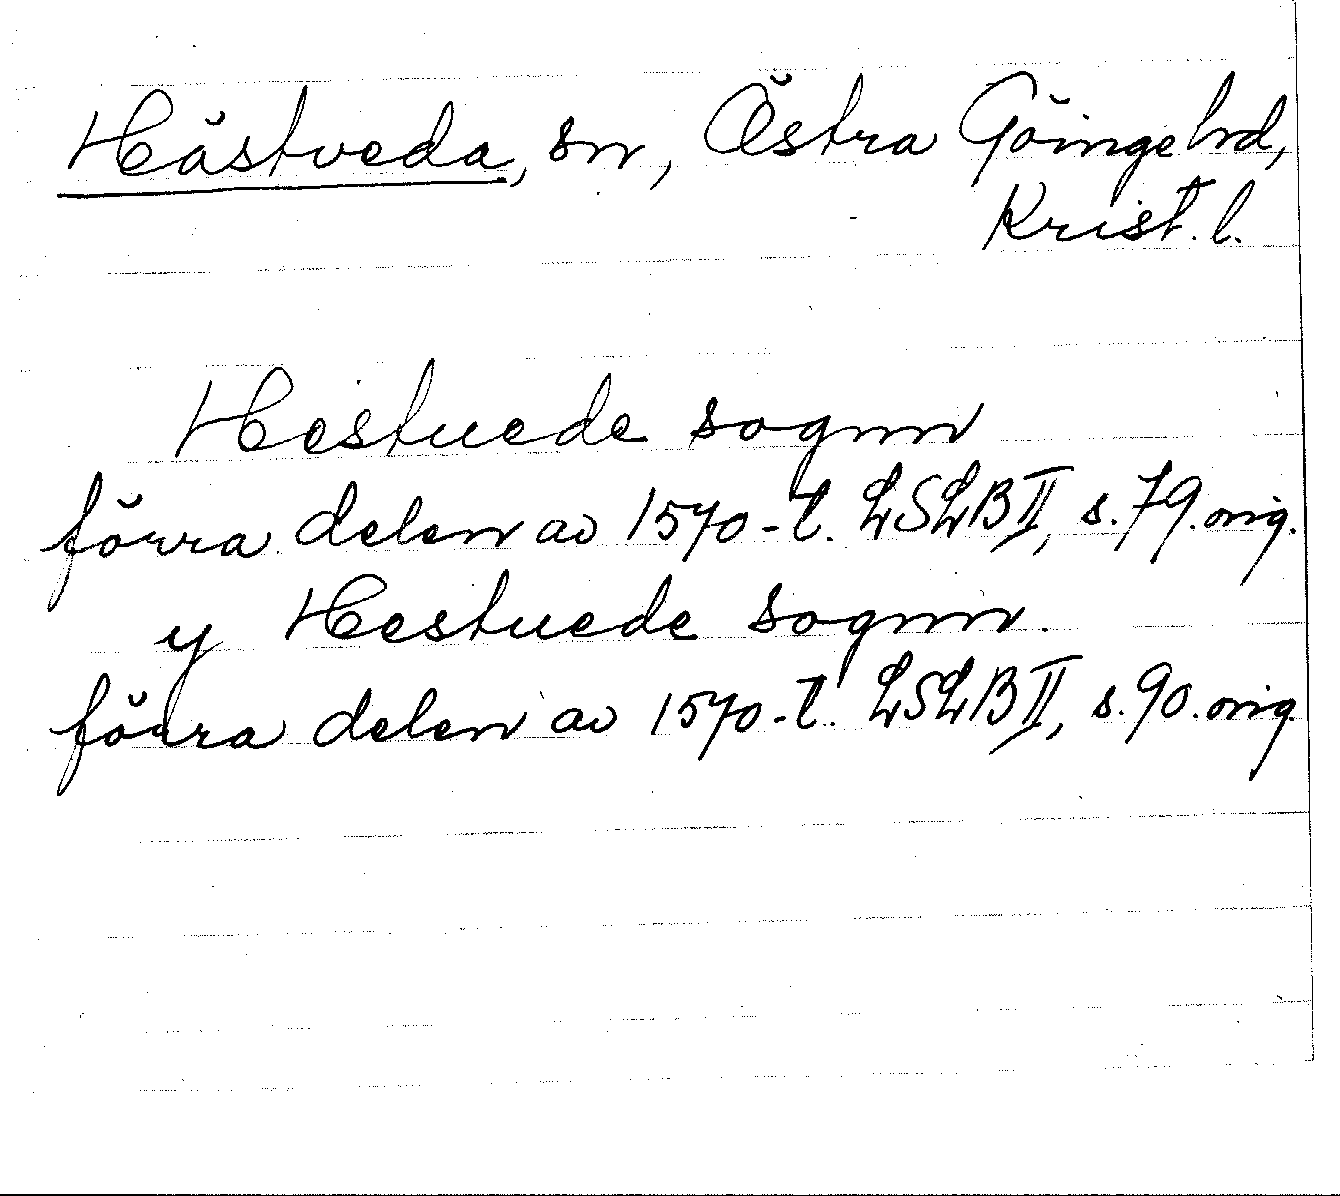 Hästveda, sn, Östra Göinge hd,
Krist. l.
Hestuede sognn
förra delen av 1570-t. LSLB II, s. 79. orig.
y Hestuede sognn.
förra delen av 1570-t. LSLB II, s. 90. orig.